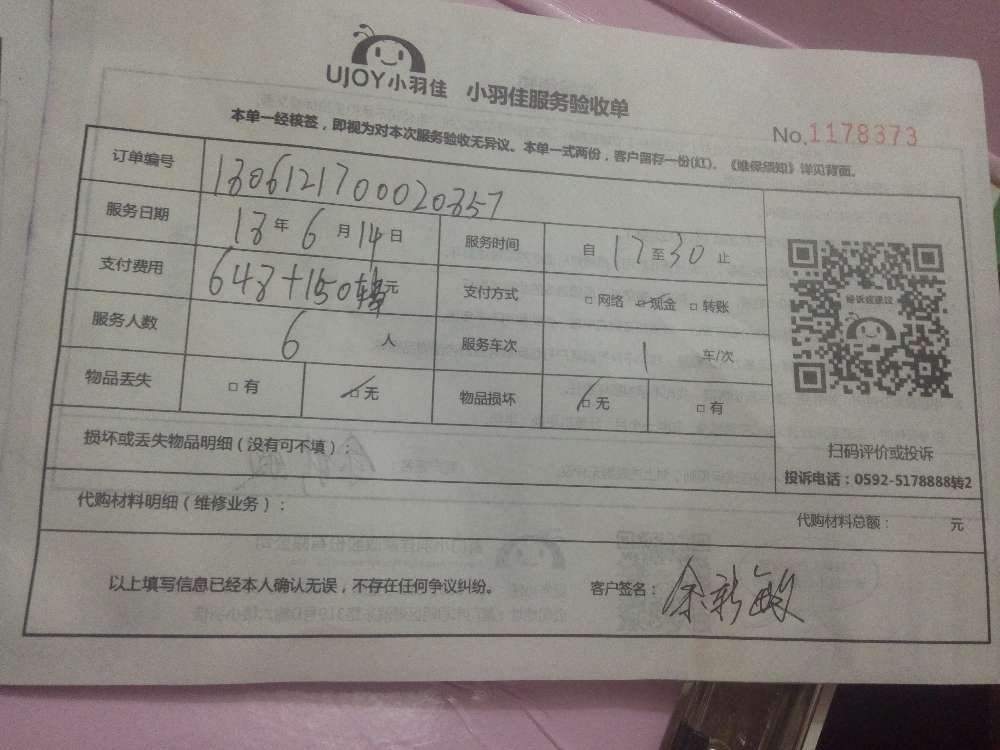 UJOY小羽佳 小羽佳服务验收单
No.1178373
本单一经核签，即视为对本次服务验收无异议。本单一式两份，客户留存一份(红)。《维保须知》详见背面。
订单编号 1806121700020857
服务日期 18年6月14日 服务时间 自17至30止
支付费用 648+150转元 支付方式 □网络 □现金 □转账
服务人数 6人 服务车次 1 车/次
物品丢失 □有 □无 物品损坏 □无 □有
投诉或建议
扫码评价或投诉
投诉电话：0592-5178888转2
损坏或丢失物品明细（没有可不填）：
代购材料明细（维修业务）： 代购材料总额： 元
以上填写信息已经本人确认无误，不存在任何争议纠纷。 客户签名：余新敏